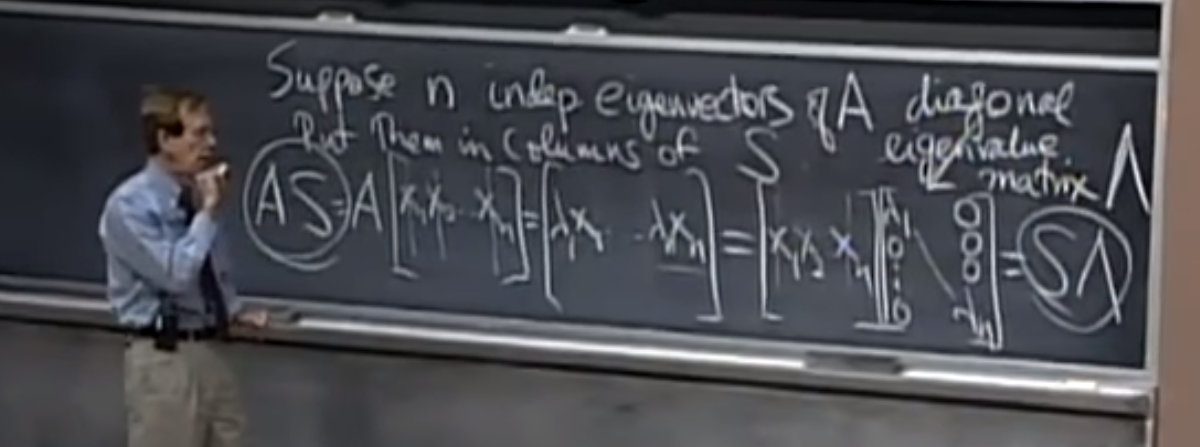 Suppose n indep eigenvectors of A
Put them in columns of S
diagonal
eigenvalue
matrix Λ
AS = A [x₁ x₂ ... xₙ] = [λ₁x₁ ... λₙxₙ] = [x₁ x₂ xₙ] [λ₁ 0 ... 0 \ 0 0 0 λₙ] = SΛ